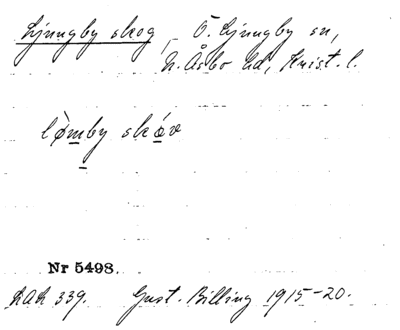 Ljungby skog, Ö. Ljungby sn,
N. Åsbo hd, Krist. l.
lø̀mby skóv
Nr 5498.
LAL 339. Gust. Billing 1915-20.